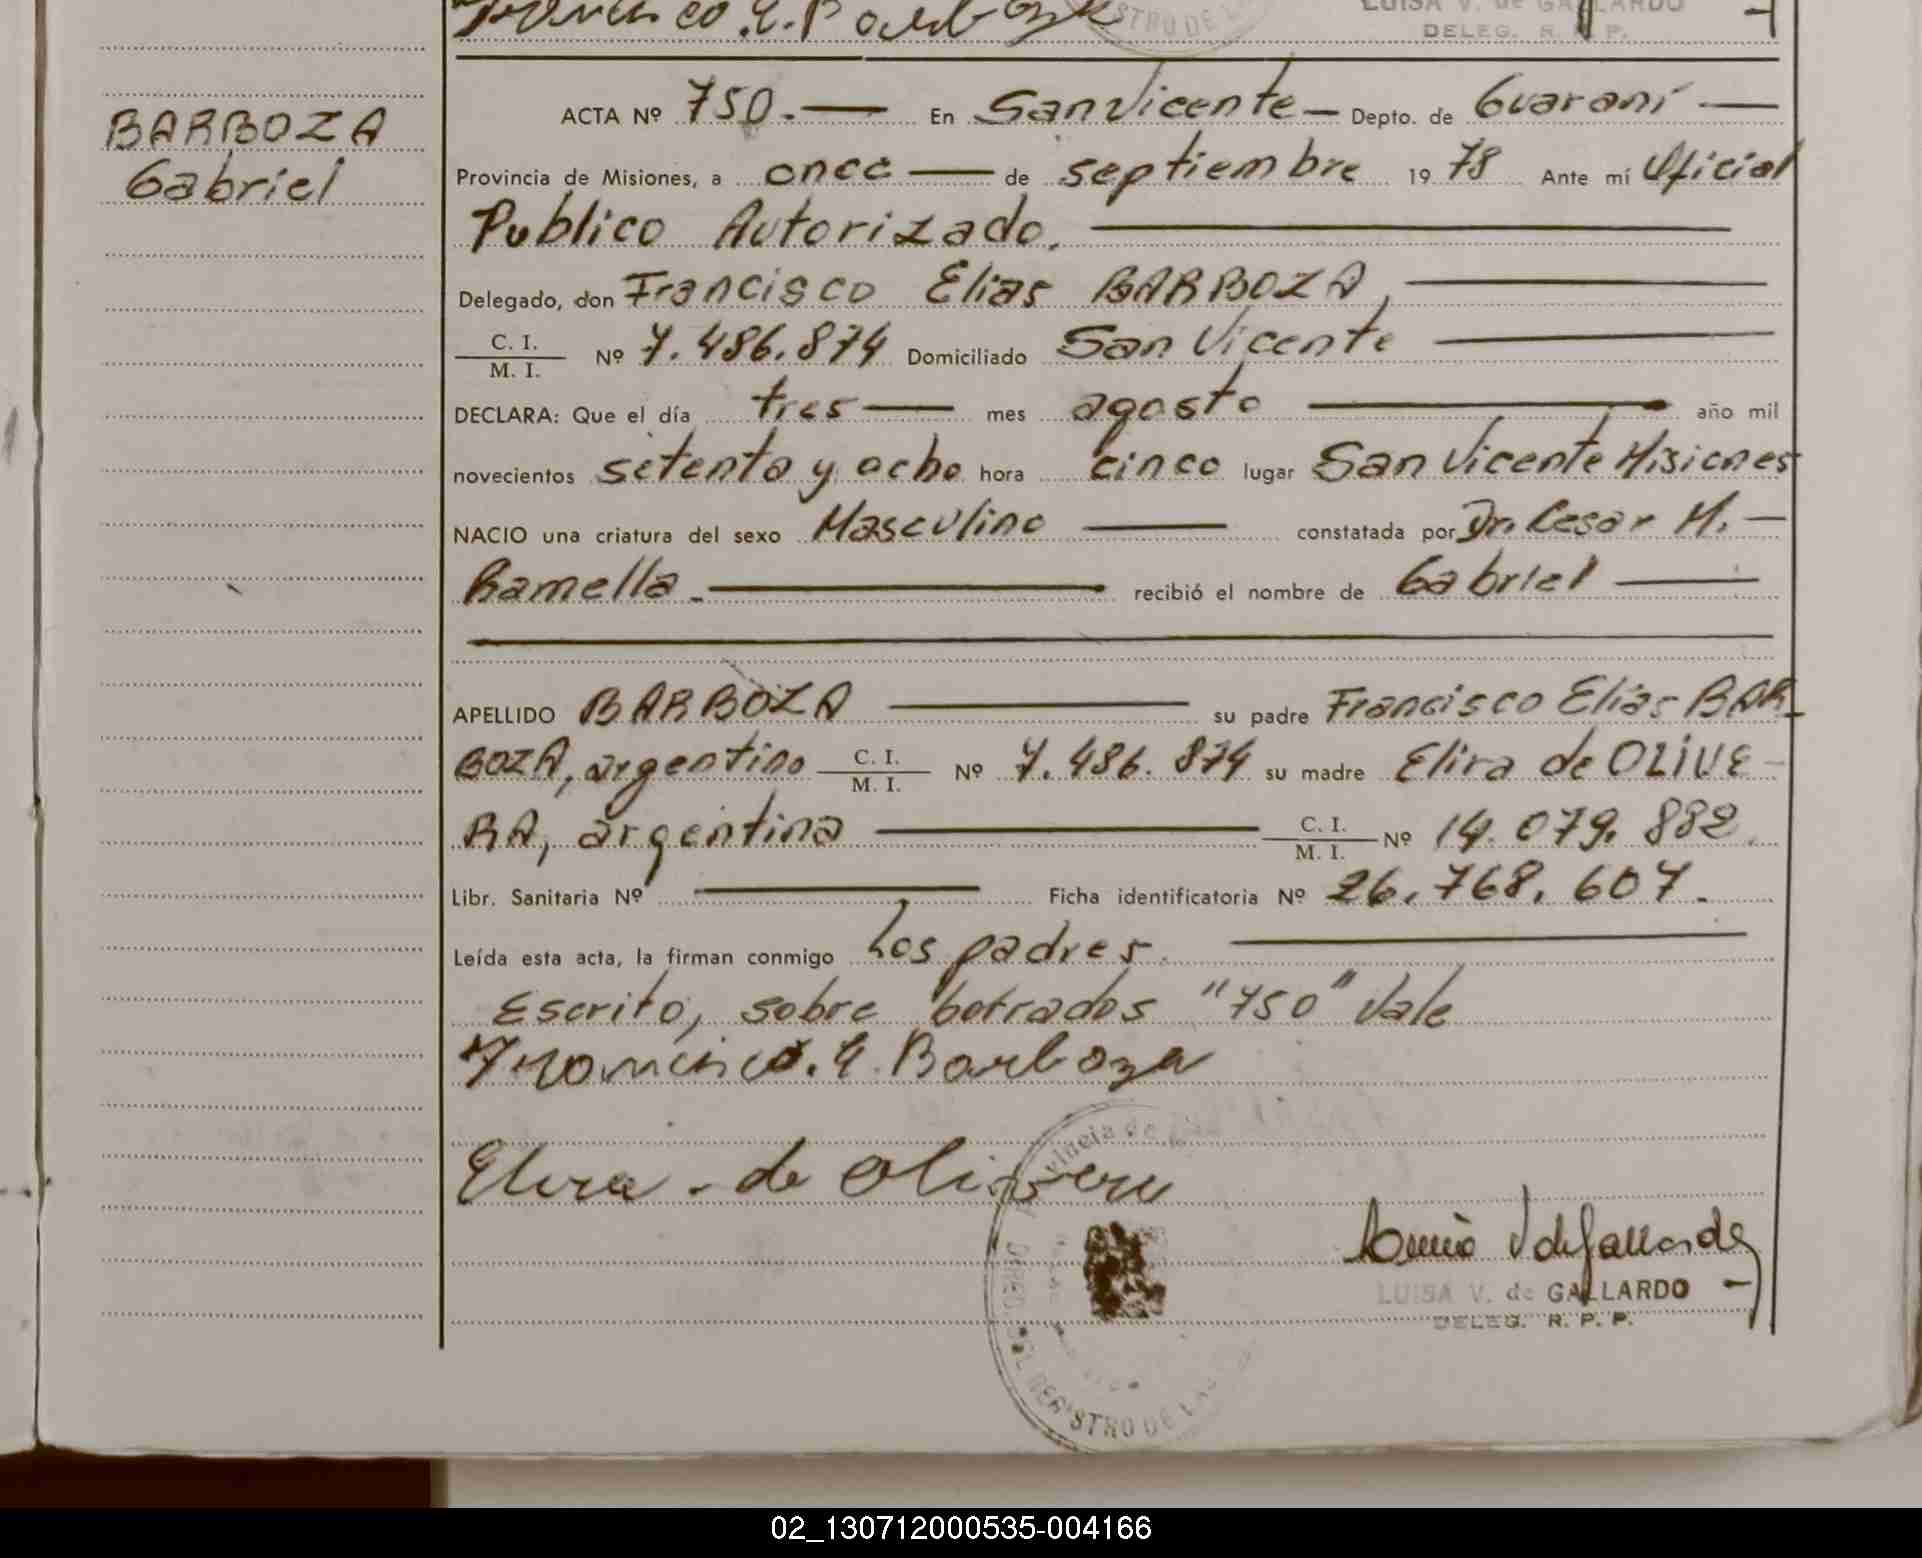 Francisco.E.Barboza
STRO DE LA
LUISA V. de GALLARDO
DELEG. R. P. P.
BARBOZA
Gabriel
ACTA Nº 750.— En San Vicente — Depto. de Guaraní —
Provincia de Misiones, a once — de septiembre 19 78 Ante mí Oficial
Publico Autorizado. —
Delegado, don Francisco Elias BARBOZA, —
C. I. / M. I. Nº 7.486.874 Domiciliado San Vicente —
DECLARA: Que el día tres — mes agosto — año mil
novecientos setenta y ocho hora cinco lugar San Vicente Misiones
NACIO una criatura del sexo Masculino — constatada por Dr. Cesar M. —
Ramella. — recibió el nombre de Gabriel —
APELLIDO BARBOZA — su padre Francisco Elias BAR-
BOZA, argentino C. I. / M. I. Nº 7.486.874 su madre Elira de OLIVE-
RA, argentina — C. I. / M. I. Nº 14.079.882.
Libr. Sanitaria Nº — Ficha identificatoria Nº 26.768.607.
Leída esta acta, la firman conmigo Los padres. —
Escrito, sobre borrados "750" Vale
Francisco.E.Barboza
Elira - de Olivera
vincia de
DIREC. DEL REGISTRO DE LAS
Luisa V de Gallardo
LUISA V. de GALLARDO
DELEG. R. P. P.
02_130712000535-004166